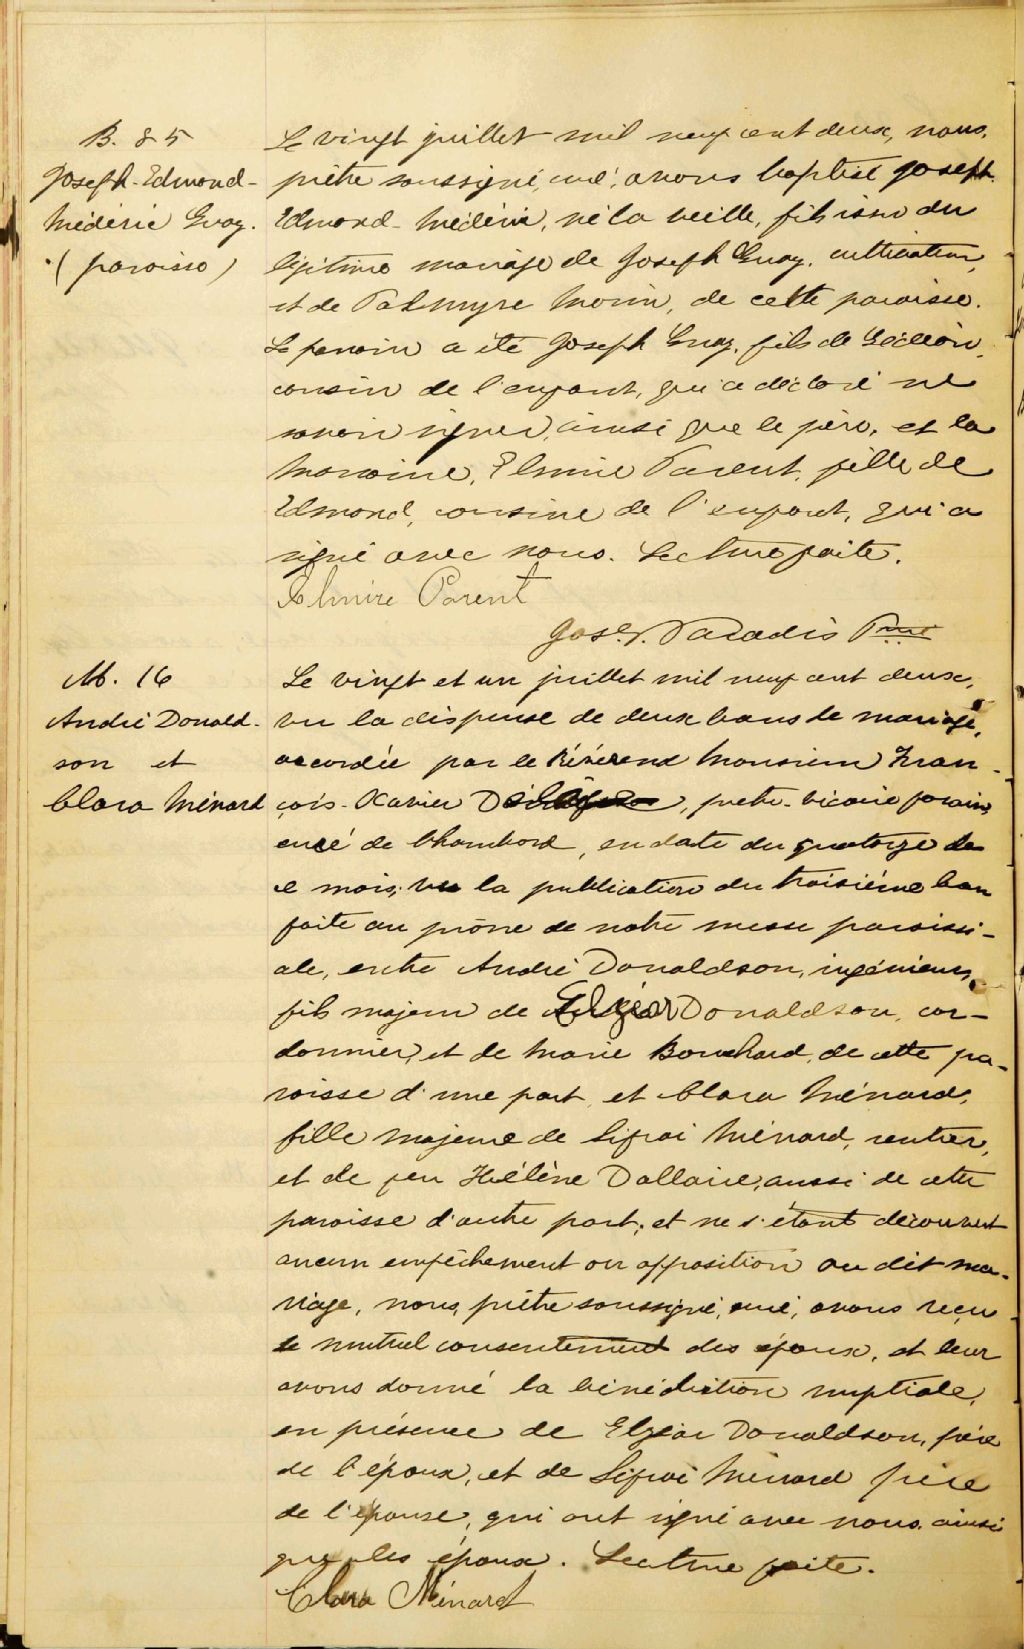 B. 85
Joseph-Edmond-
Médéric Guay.
(paroisse)
Le vingt juillet mil neuf cent deux, nous,
prêtre soussigné, curé, avons baptisé Joseph
Edmond-Médéric, né la veille, fils issu du
légitime mariage de Joseph Guay, cultivateur,
et de Palmyre Morin, de cette paroisse.
Le parrain a été Joseph Guay, fils de Gédéon,
cousin de l'enfant, qui a déclaré ne
savoir signer, ainsi que le père, et la
marraine, Elmire Parent, fille de
Edmond, cousine de l'enfant, qui a
signé avec nous. Lecture faite.
Elmire Parent
Jos. Paradis Ptre
M. 16
André Donald-
son et
Clara Ménard
Le vingt et un juillet mil neuf cent deux,
vu la dispense de deux bans de mariage,
accordée par le Révérend Monsieur Fran-
çois-Xavier, prêtre-vicaire forain,
curé de Chambord, en date du quatorze de
ce mois; vu la publication du troisième ban
faite au prône de notre messe paroissi-
ale, entre André Donaldson, ingénieur,
fils majeur de Elzéar Donaldson, cor-
donnier, et de Marie Bouchard, de cette pa-
roisse d'une part, et Clara Ménard,
fille majeure de Sifroi Ménard, rentier,
et de feu Hélène Dallaire, aussi de cette
paroisse d'autre part; et ne s'étant découvert
aucun empêchement ou opposition au dit ma-
riage, nous, prêtre soussigné, curé, avons reçu
le mutuel consentement des époux, et leur
avons donné la bénédiction nuptiale,
en présence de Elzéar Donaldson, père
de l'époux, et de Sifroi Ménard père
de l'épouse, qui ont signé avec nous ainsi
que les époux. Lecture faite.
Clara Ménard